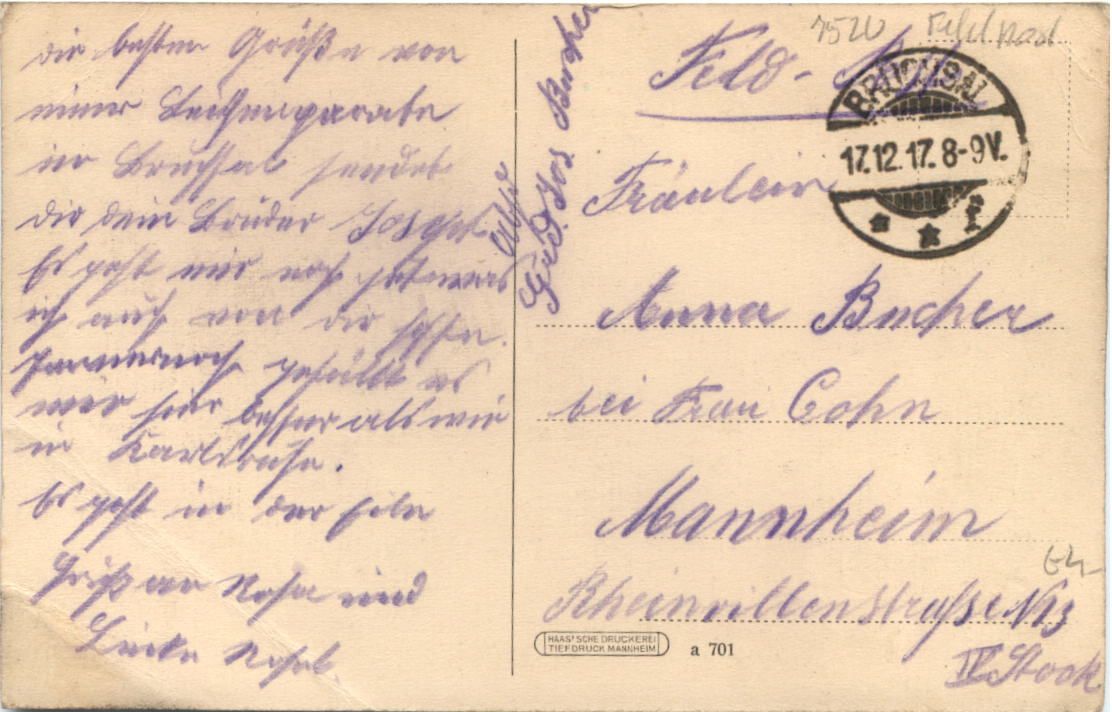 die besten Grüße von
einer Leichenparade
in Bruchsal sendet
Dir dein Bruder Josef
Es geht mir noch gut was
ich auch von dir hoffe.
gefällt es
mir hier besser als wie
in Karlsruhe.
Es geht in der Eile
Gruß an Rosa und
Jos Bucher
7520 Feldpost
Feld-
BRUCHSAL
17.12.17. 8-9V.
* * f
Fräulein
Anna Bucher
bei Frau Cohn
Mannheim
Rheinvillenstraße N 3
IV Stock
HAAS'SCHE DRUCKEREI
TIEFDRUCK MANNHEIM
a 701